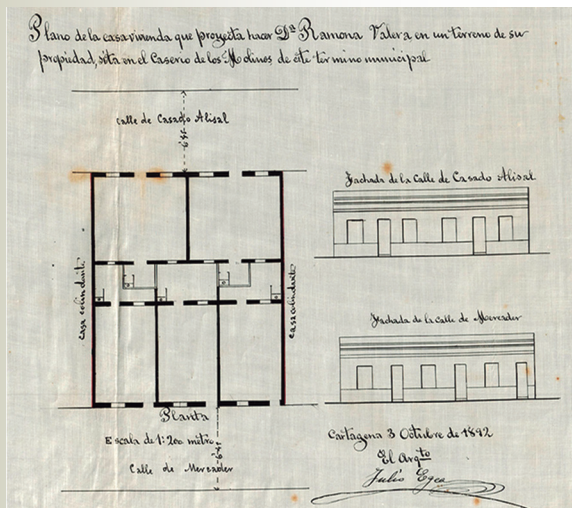 Plano de la casa vivienda que proyecta hacer Dª Ramona Valera en un terreno de su
propiedad, sita en el Caserio de los Molinos de éste termino municipal
Calle de Casado Alisal
Fachada de la Calle de Casado Alisal
casa colindante
casa colindante
Fachada de la calle de Mercader
Planta
Escala de 1:200 metro
Calle de Mercader
Cartagena 3 Octubre de 1892
El Arqto
Julio Egea